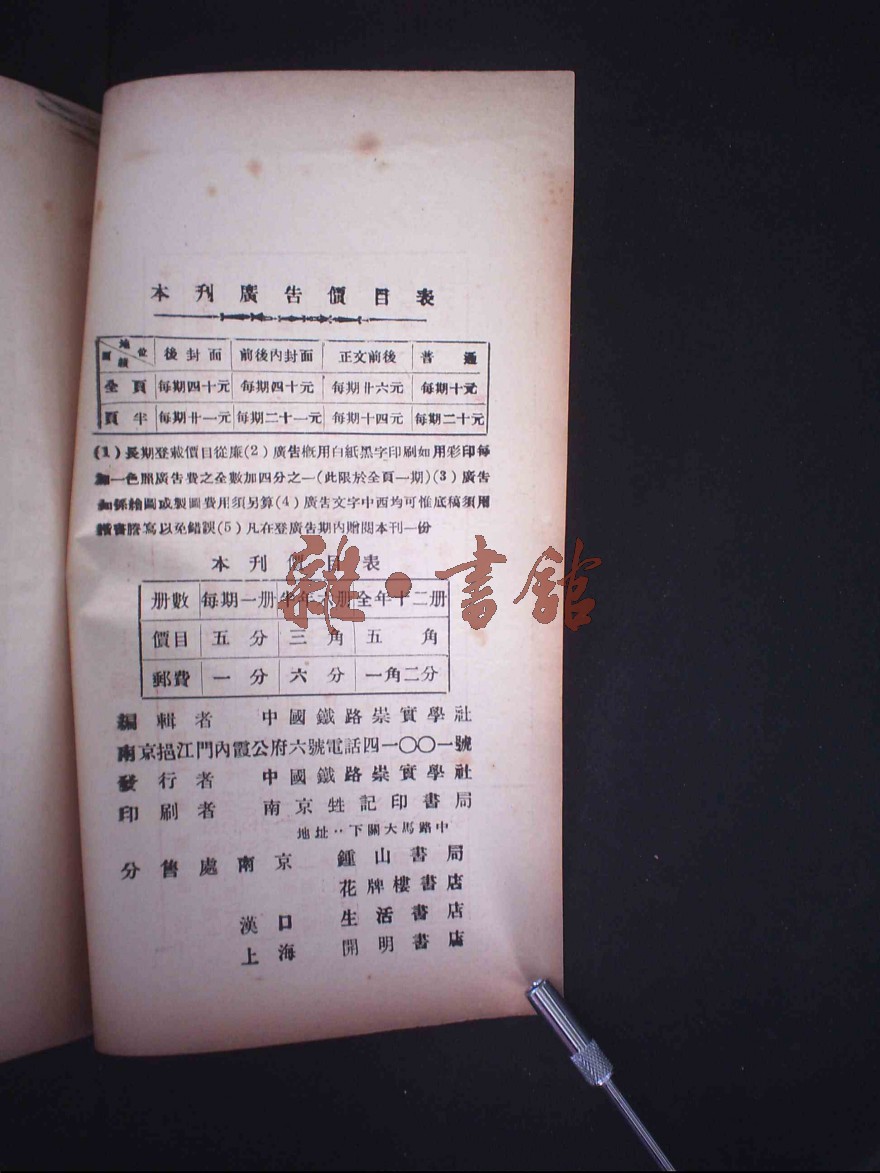 本刊廣告價目表
地位 面積 後封面 前後內封面 正文前後 普通
全頁 每期四十元 每期四十元 每期廿六元 每期十元
頁半 每期廿一元 每期二十一元 每期十四元 每期二十元
(1)長期登載價目從廉(2)廣告概用白紙黑字印刷如用彩印每
加一色照廣告費之全數加四分之一(此限於全頁一期)(3)廣告
如係繪圖或製圖費用須另算(4)廣告文字中西均可惟底稿須用
楷書謄寫以免錯誤(5)凡在登廣告期內贈閱本刊一份
本刊價目表
雜·書館
册數 每期一册 半年六册 全年十二册
價目 五分 三角 五角
郵費 一分 六分 一角二分
編輯者 中國鐵路崇實學社
南京挹江門內霞公府六號電話四一〇〇一號
發行者 中國鐵路崇實學社
印刷者 南京甡記印書局
地址‥下關大馬路中
分售處 南京 鍾山書局
花牌樓書店
漢口 生活書店
上海 開明書店